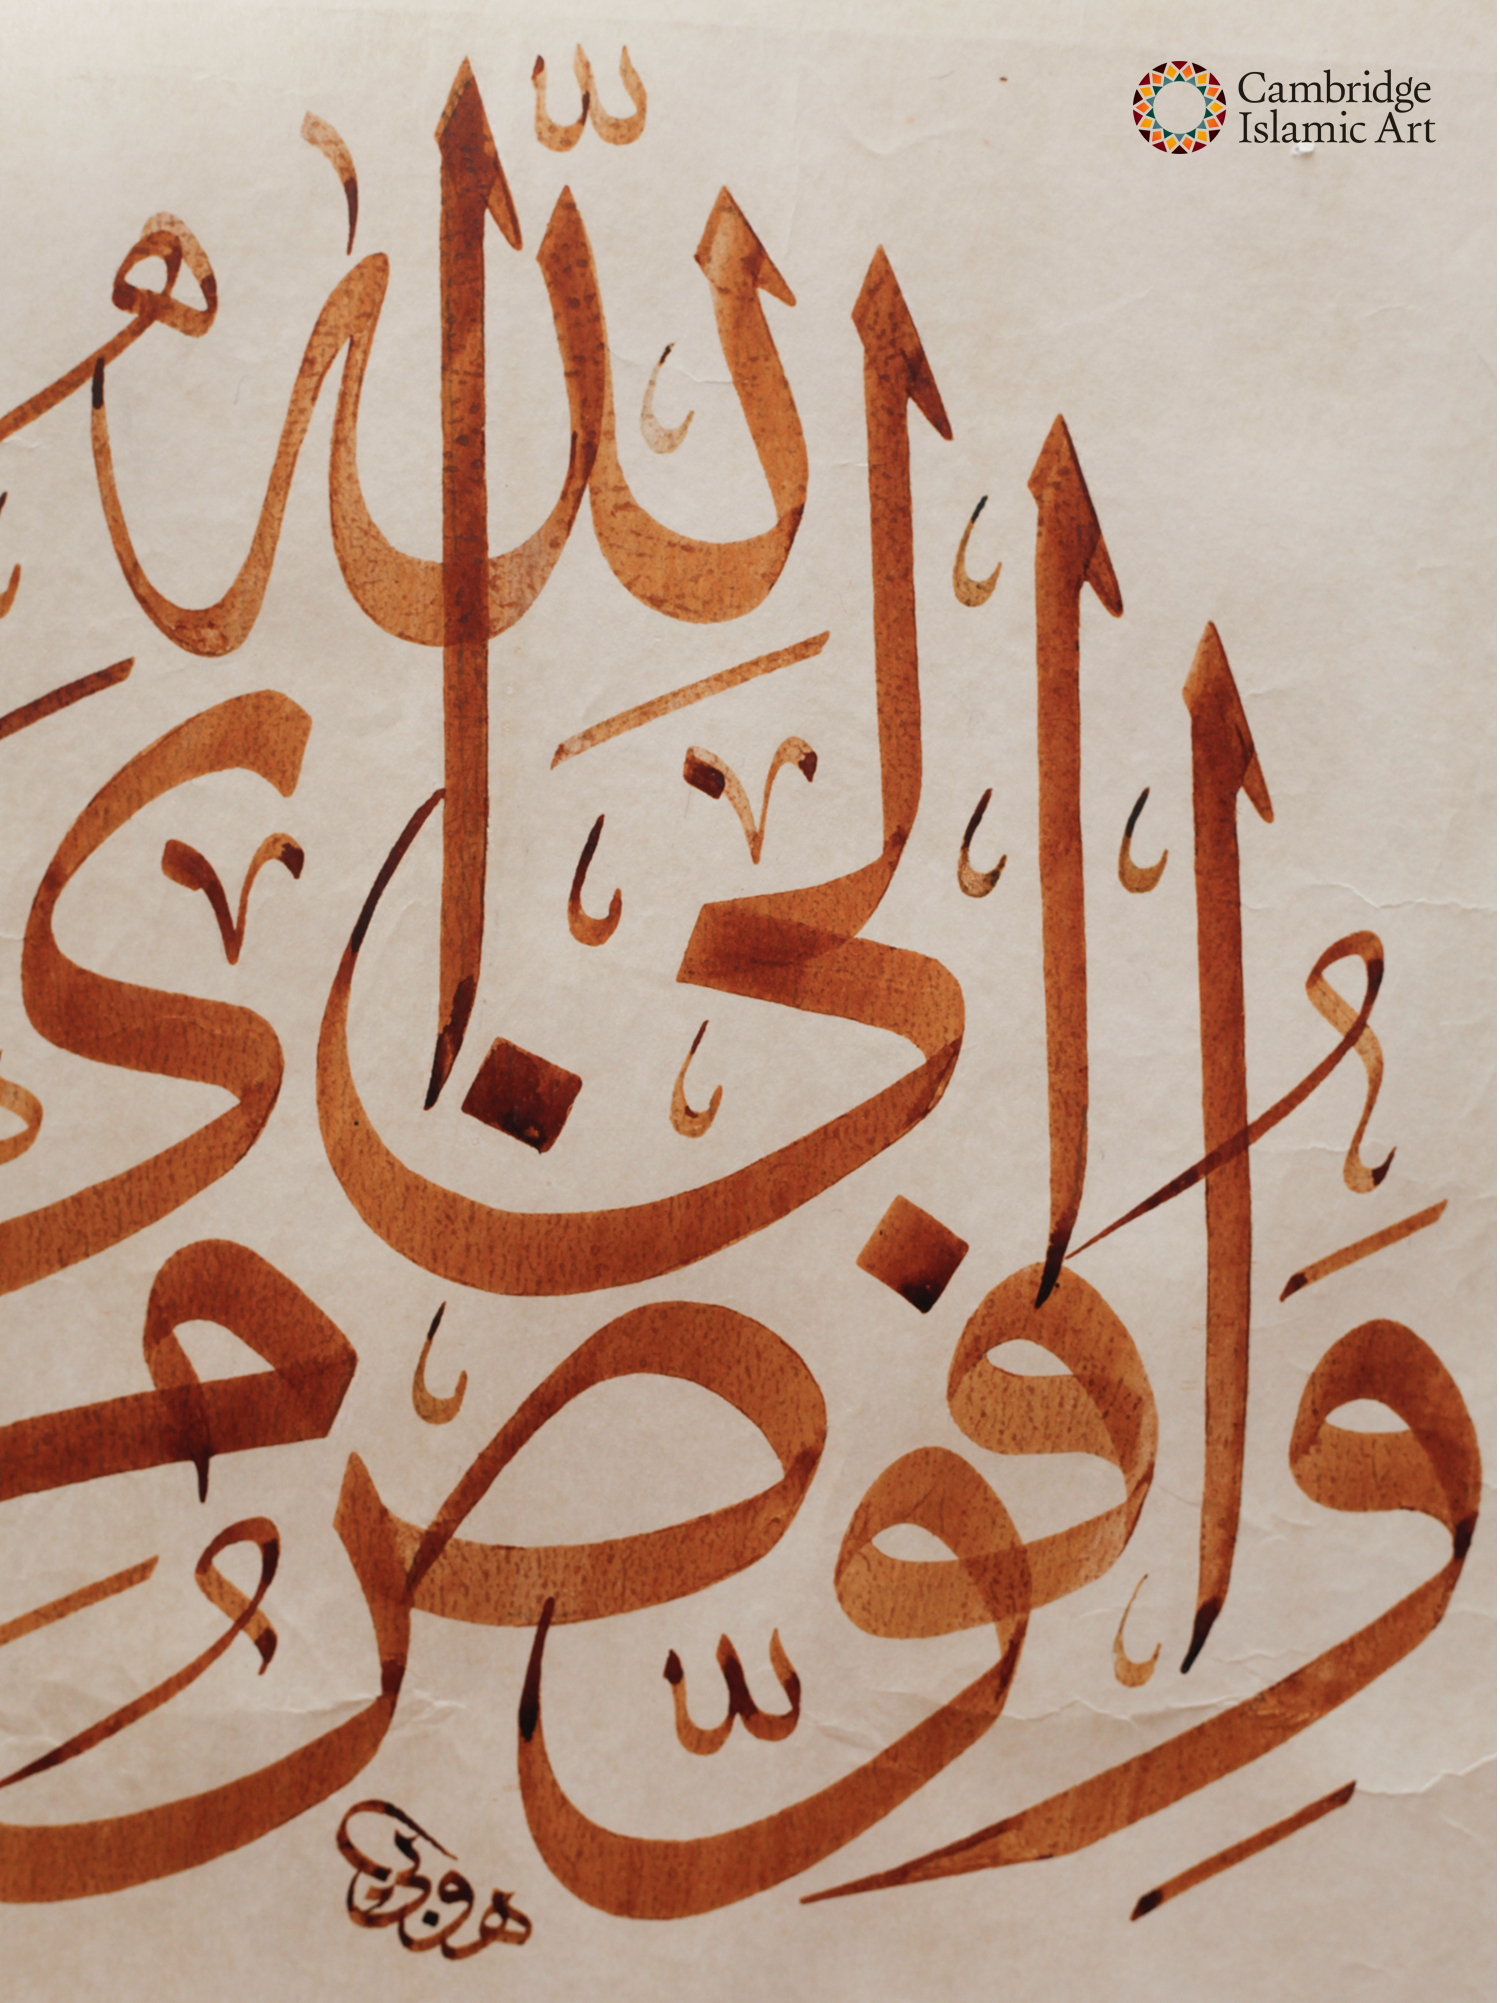 Cambridge
Islamic Art
وَأُفَوِّضُ أَمْرِي إِلَى اللَّهِ